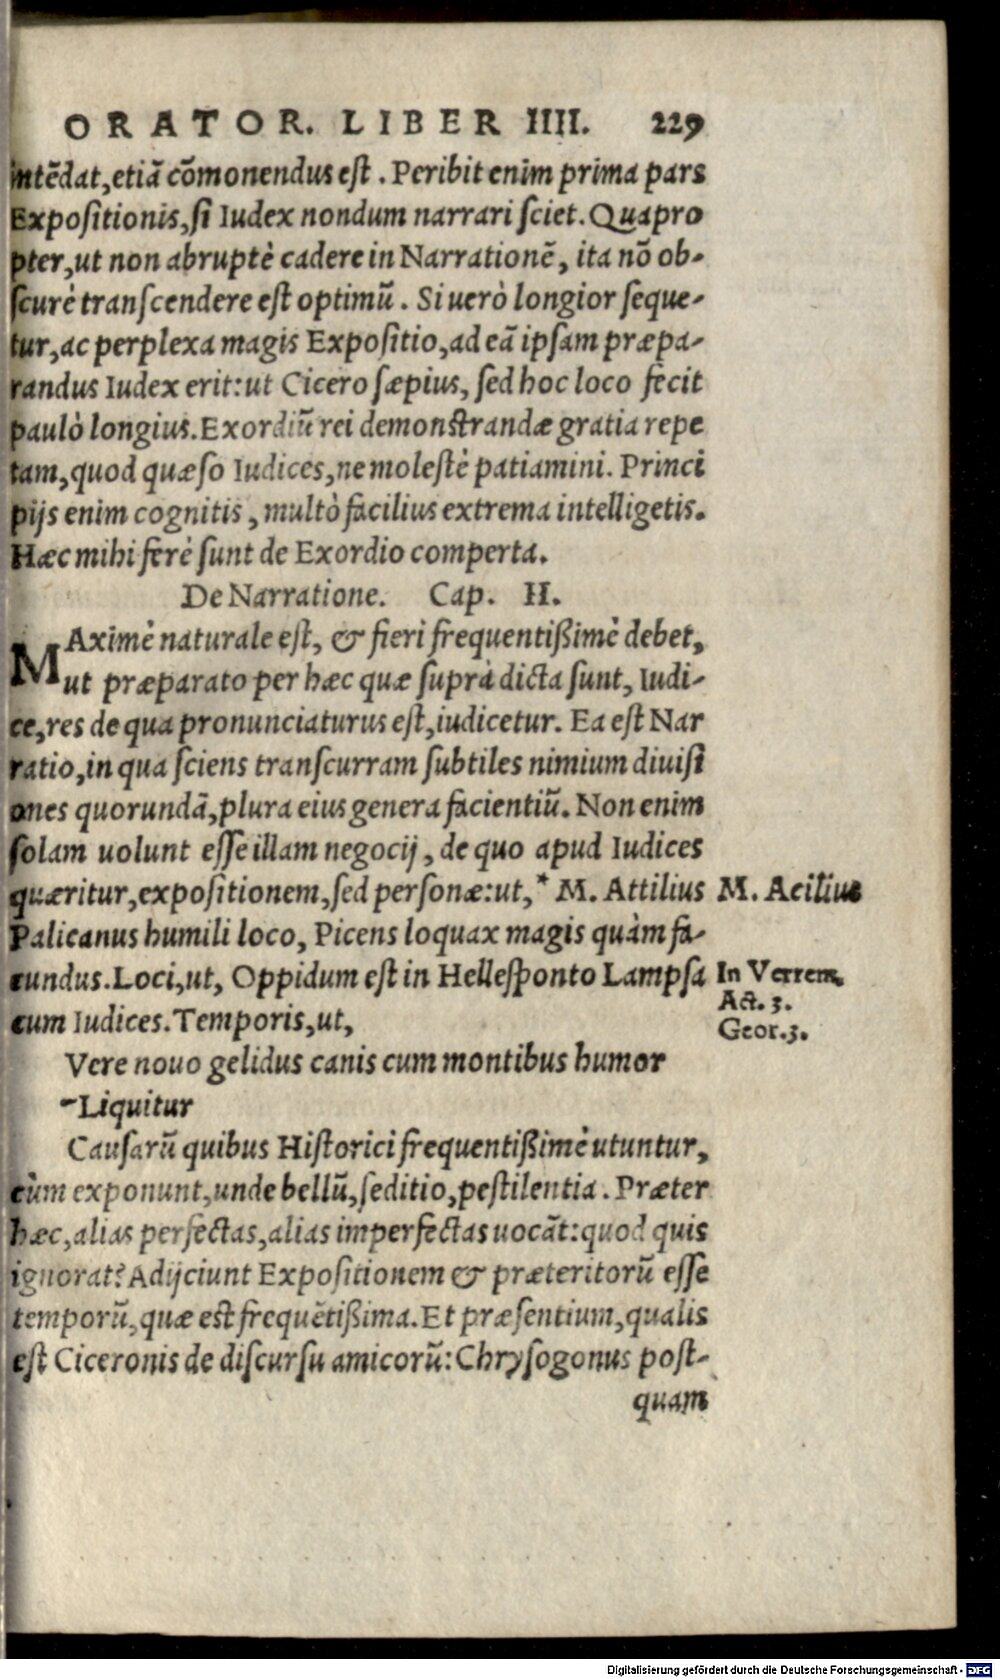 ORATOR. LIBER IIII. 229
intẽdat, etiã cõmonendus est. Peribit enim prima pars
Expositionis, si Iudex nondum narrari sciet. Quapro
pter, ut non abruptè cadere in Narrationẽ, ita nõ ob-
scurè transcendere est optimũ. Si uerò longior seque-
tur, ac perplexa magis Expositio, ad eã ipsam præpa-
randus Iudex erit: ut Cicero sæpius, sed hoc loco fecit
paulò longius. Exordiũ rei demonstrandæ gratia repe
tam, quod quæso Iudices, ne molestè patiamini. Princi
pijs enim cognitis, multò facilius extrema intelligetis.
Hæc mihi ferè sunt de Exordio comperta.
De Narratione. Cap. II.
MAximè naturale est, & fieri frequentißimè debet,
ut præparato per hæc quæ suprà dicta sunt, Iudi-
ce, res de qua pronunciaturus est, iudicetur. Ea est Nar
ratio, in qua sciens transcurram subtiles nimium diuisi
ones quorundã, plura eius genera facientiũ. Non enim
solam uolunt esse illam negocij, de quo apud Iudices
quæritur, expositionem, sed personæ: ut, * M. Attilius
M. Acilius
Palicanus humili loco, Picens loquax magis quàm fa-
cundus. Loci, ut, Oppidum est in Hellesponto Lampsa
In Verrem,
Act. 3.
cum Iudices. Temporis, ut,
Geor. 3.
Vere nouo gelidus canis cum montibus humor
-Liquitur
Causarũ quibus Historici frequentißimè utuntur,
cùm exponunt, unde bellũ, seditio, pestilentia. Præter
hæc, alias perfectas, alias imperfectas uocãt: quod quis
ignorat? Adijciunt Expositionem & præteritorũ esse
temporũ, quæ est frequẽtißima. Et præsentium, qualis
est Ciceronis de discursu amicorũ: Chrysogonus post-
quam
Digitalisierung gefördert durch die Deutsche Forschungsgemeinschaft - DFG